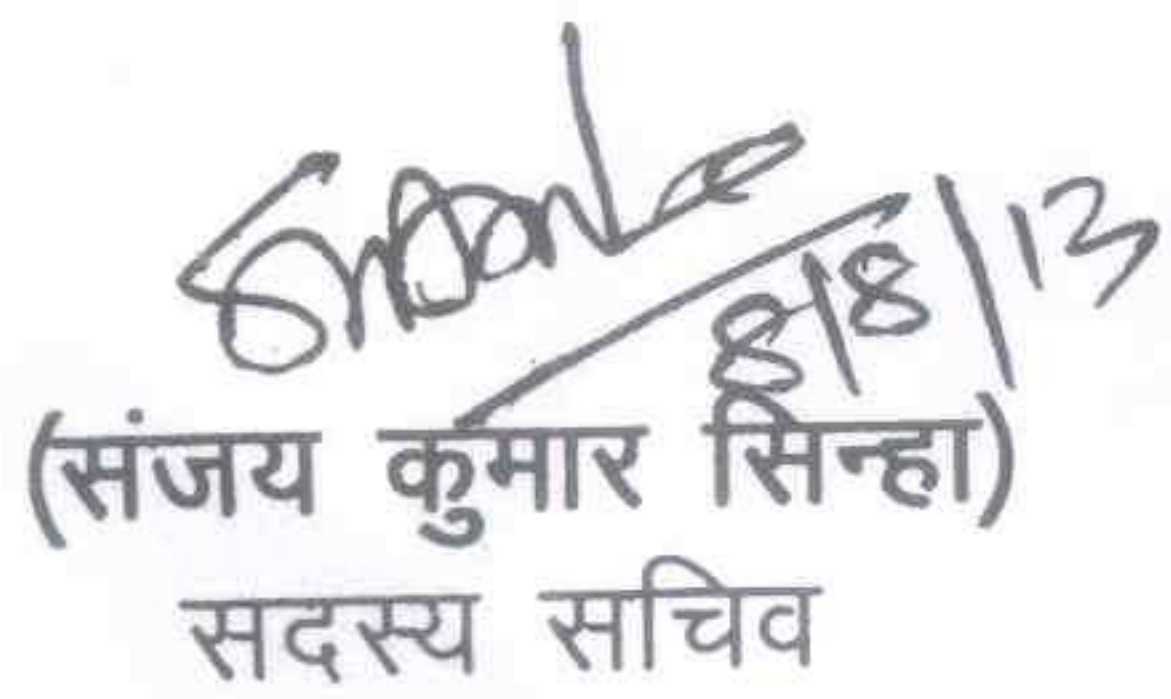 8/8/13
(संजय कुमार सिन्हा)
सदस्य सचिव